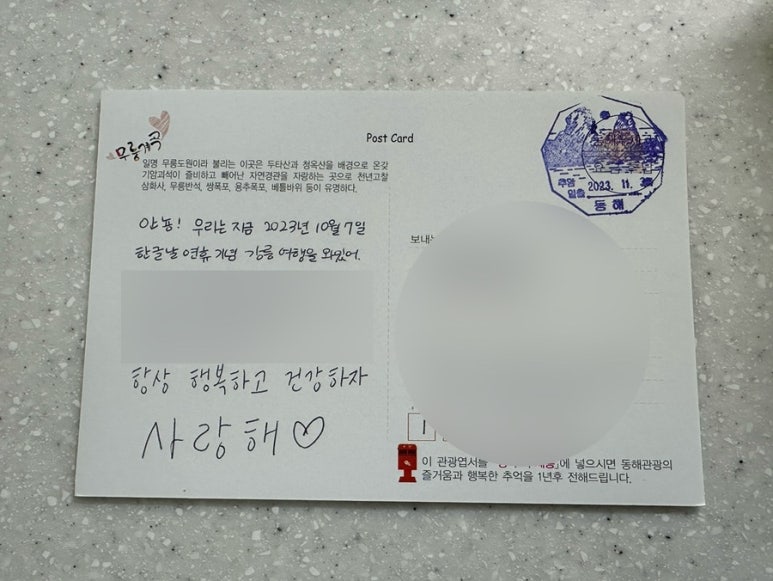 무릉계곡
Post Card
일명 무릉도원이라 불리는 이곳은 두타산과 청옥산을 배경으로 온갖
기암괴석이 즐비하고 빼어난 자연경관을 자랑하는 곳으로 천년고찰
삼화사, 무릉반석, 쌍폭포, 용추폭포, 베틀바위 등이 유명하다.
안뇽! 우리는 지금 2023년 10월 7일
한글날 연휴 기념 강릉 여행을 와있어.
항상 행복하고 건강하자
사랑해♡
추암
일출
2023. 11.
동해
보내는
1
이 관광엽서를 에 넣으시면 동해관광의
즐거움과 행복한 추억을 1년후 전해드립니다.